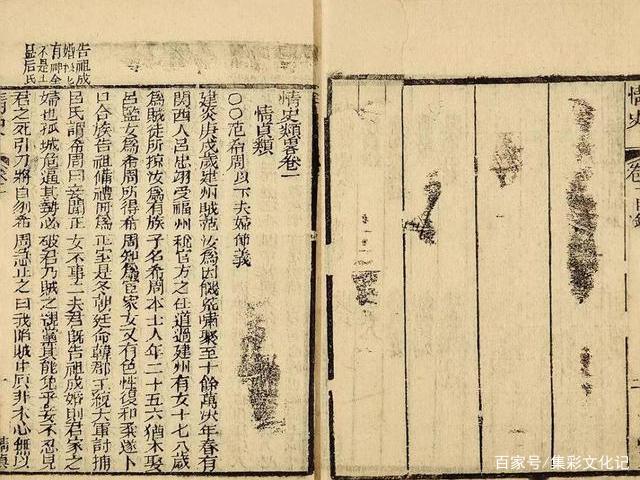 情史
卷 目錄
情史類畧卷一
情貞類
○○范希周以下夫婦節義
建炎庚戌歲建州賊范汝爲因饑荒嘯聚至十餘萬次年春有
関西人呂忠翊受福州稅官方之任道過建州有女十七八歲
爲賊徒所掠汝爲有族子名希周本士人年二十五六猶未娶
呂監女爲希周所得希周知爲宦家女又有色性復和柔遂卜
日合族告祖備禮冊爲正室是冬朝廷命韓郡王統大軍討捕
呂氏謂希周曰妾聞正女不事二夫君旣告祖成婚則君家之
婦也孤城危逼其勢必破君乃賊之親黨其能免乎妾不忍見
君之死引刀將自刎希周急止之曰我陷賊中原非本心無以
告祖成
婚
有神
不是
情史
卷一
一
情貞
百家号/集彩文化记